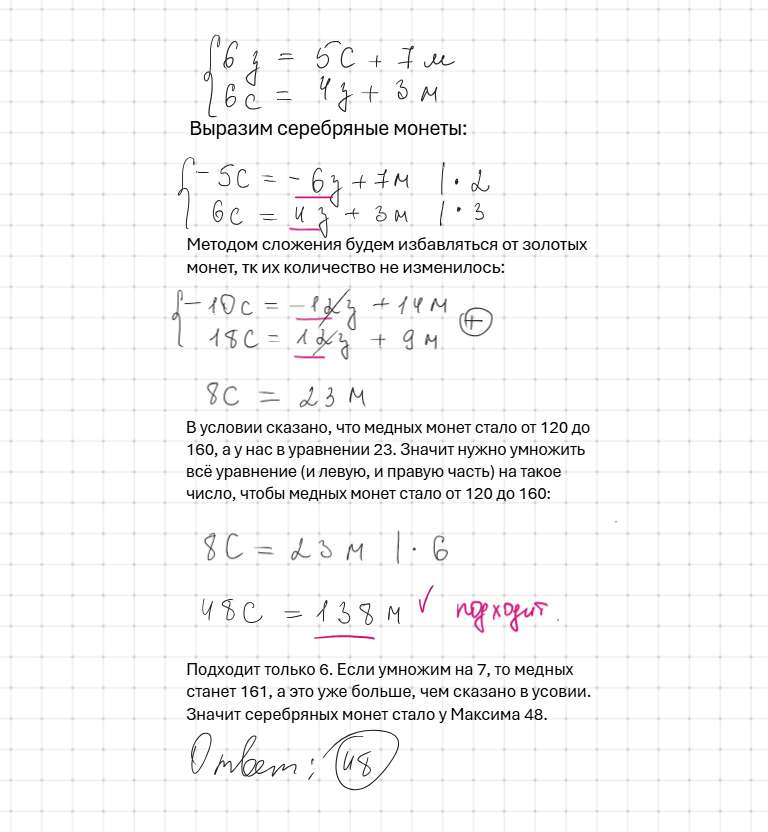 6з = 5с + 7м
6с = 4з + 3м
Выразим серебряные монеты:
-5с = -6з + 7м | · 2
6с = 4з + 3м | · 3
Методом сложения будем избавляться от золотых
монет, тк их количество не изменилось:
-10с = -12з + 14м
18с = 12з + 9м
+
8с = 23м
В условии сказано, что медных монет стало от 120 до
160, а у нас в уравнении 23. Значит нужно умножить
всё уравнение (и левую, и правую часть) на такое
число, чтобы медных монет стало от 120 до 160:
8с = 23м | · 6
48с = 138м ✓ подходит.
Подходит только 6. Если умножим на 7, то медных
станет 161, а это уже больше, чем сказано в усовии.
Значит серебряных монет стало у Максима 48.
Ответ: 48